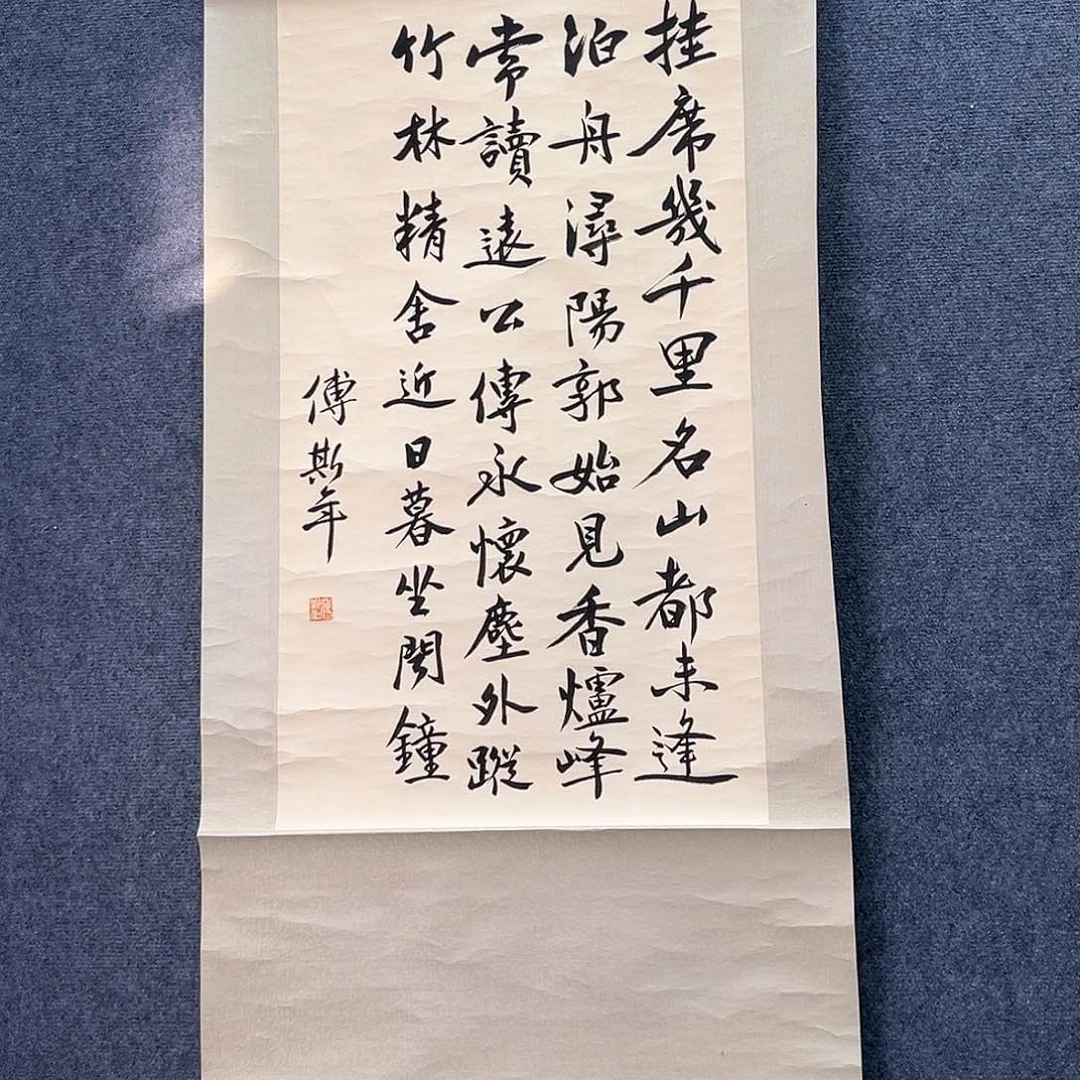 挂席幾千里名山都未逢
泊舟潯陽郭始見香爐峰
常讀遠公傳永懷塵外蹤
竹林精舍近日暮坐聞鐘
傅斯年